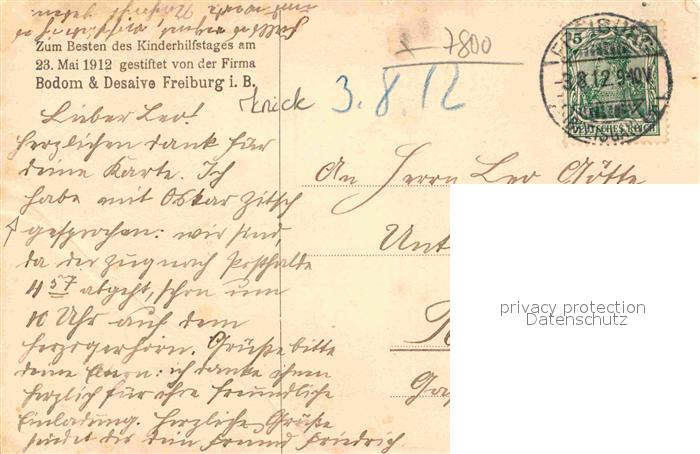 Zum Besten des Kinderhilfstages am
23. Mai 1912 gestiftet von der Firma
Bodom & Desaive Freiburg i. B.
x 7800
Knick
3.8.12
FREIBURG
3.8.12.9-10V.
5
DEUTSCHES REICH
Lieber Leo!
Herzlichen Dank für
deine Karte. Ich
habe mit Oskar Zitsch
gesprochen: wir sind,
da der Zug nach Posthalde
4 57 abgeht, schon um
10 Uhr auf dem
Herzogenhorn. Grüße bitte
deine Eltern: ich danke ihnen
herzlich für ihre freundliche
Einladung. Herzliche Grüße
sendet dir dein Freund Friedrich.
An Herrn Leo Götte
Unt
Ga
privacy protection
Datenschutz